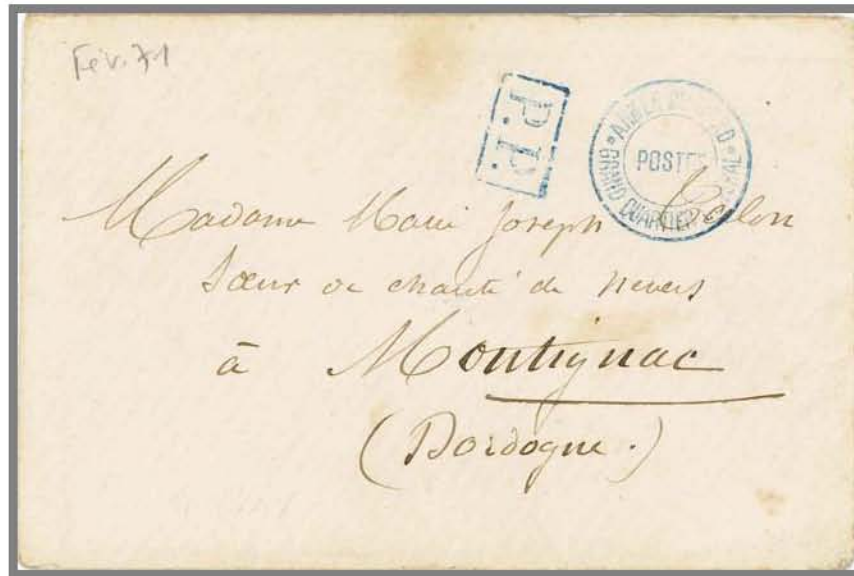 Fév. 71
P.P.
ARMÉE DU NORD
POSTES
GRAND QUARTIER GAL
Madame Marie Joseph
Sœur de charité de Nevers
à Montignac
(Dordogne.)